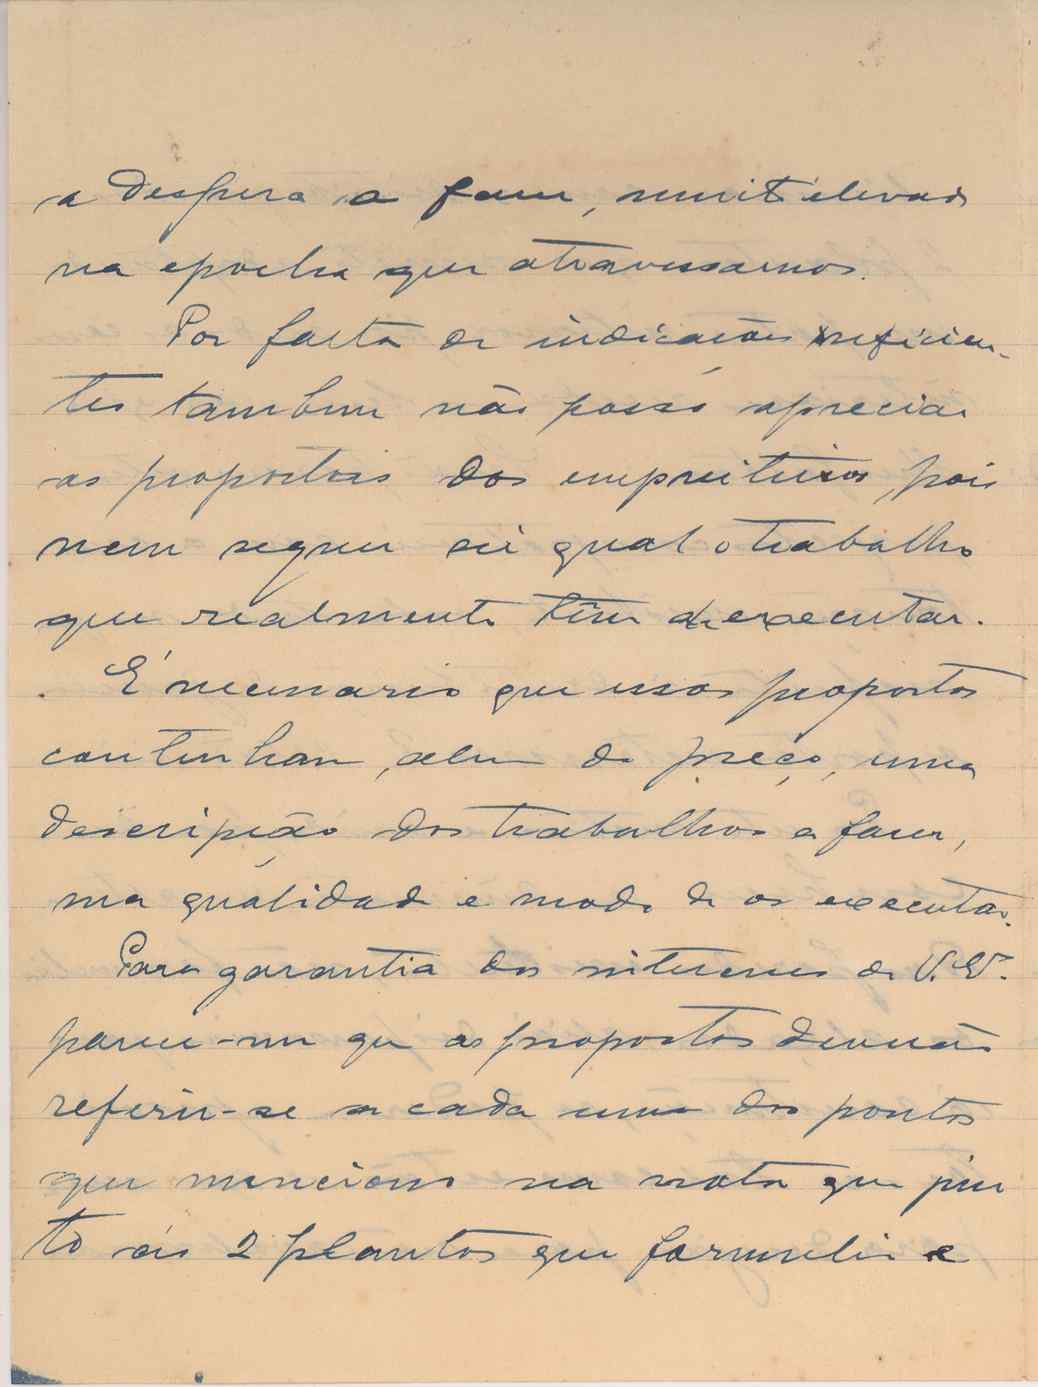 a despesa a fazer, muito elevada
na epocha que atravessamos.
Por falta de indicações suficien-
tes tambem não posso apreciar
as propostas dos empreiteiros, pois
nem sequer sei qual o trabalho
que realmente têm de executar.
É necessario que essas propostas
contenham, alem do preço, uma
descripção dos trabalhos a fazer,
sua qualidade e modo de os executar.
Para garantia dos interesses de V. E.
parece-me que as propostas deverão
referir-se a cada um dos pontos
que menciono na nota que jun
to ás 2 plantas que formulei e